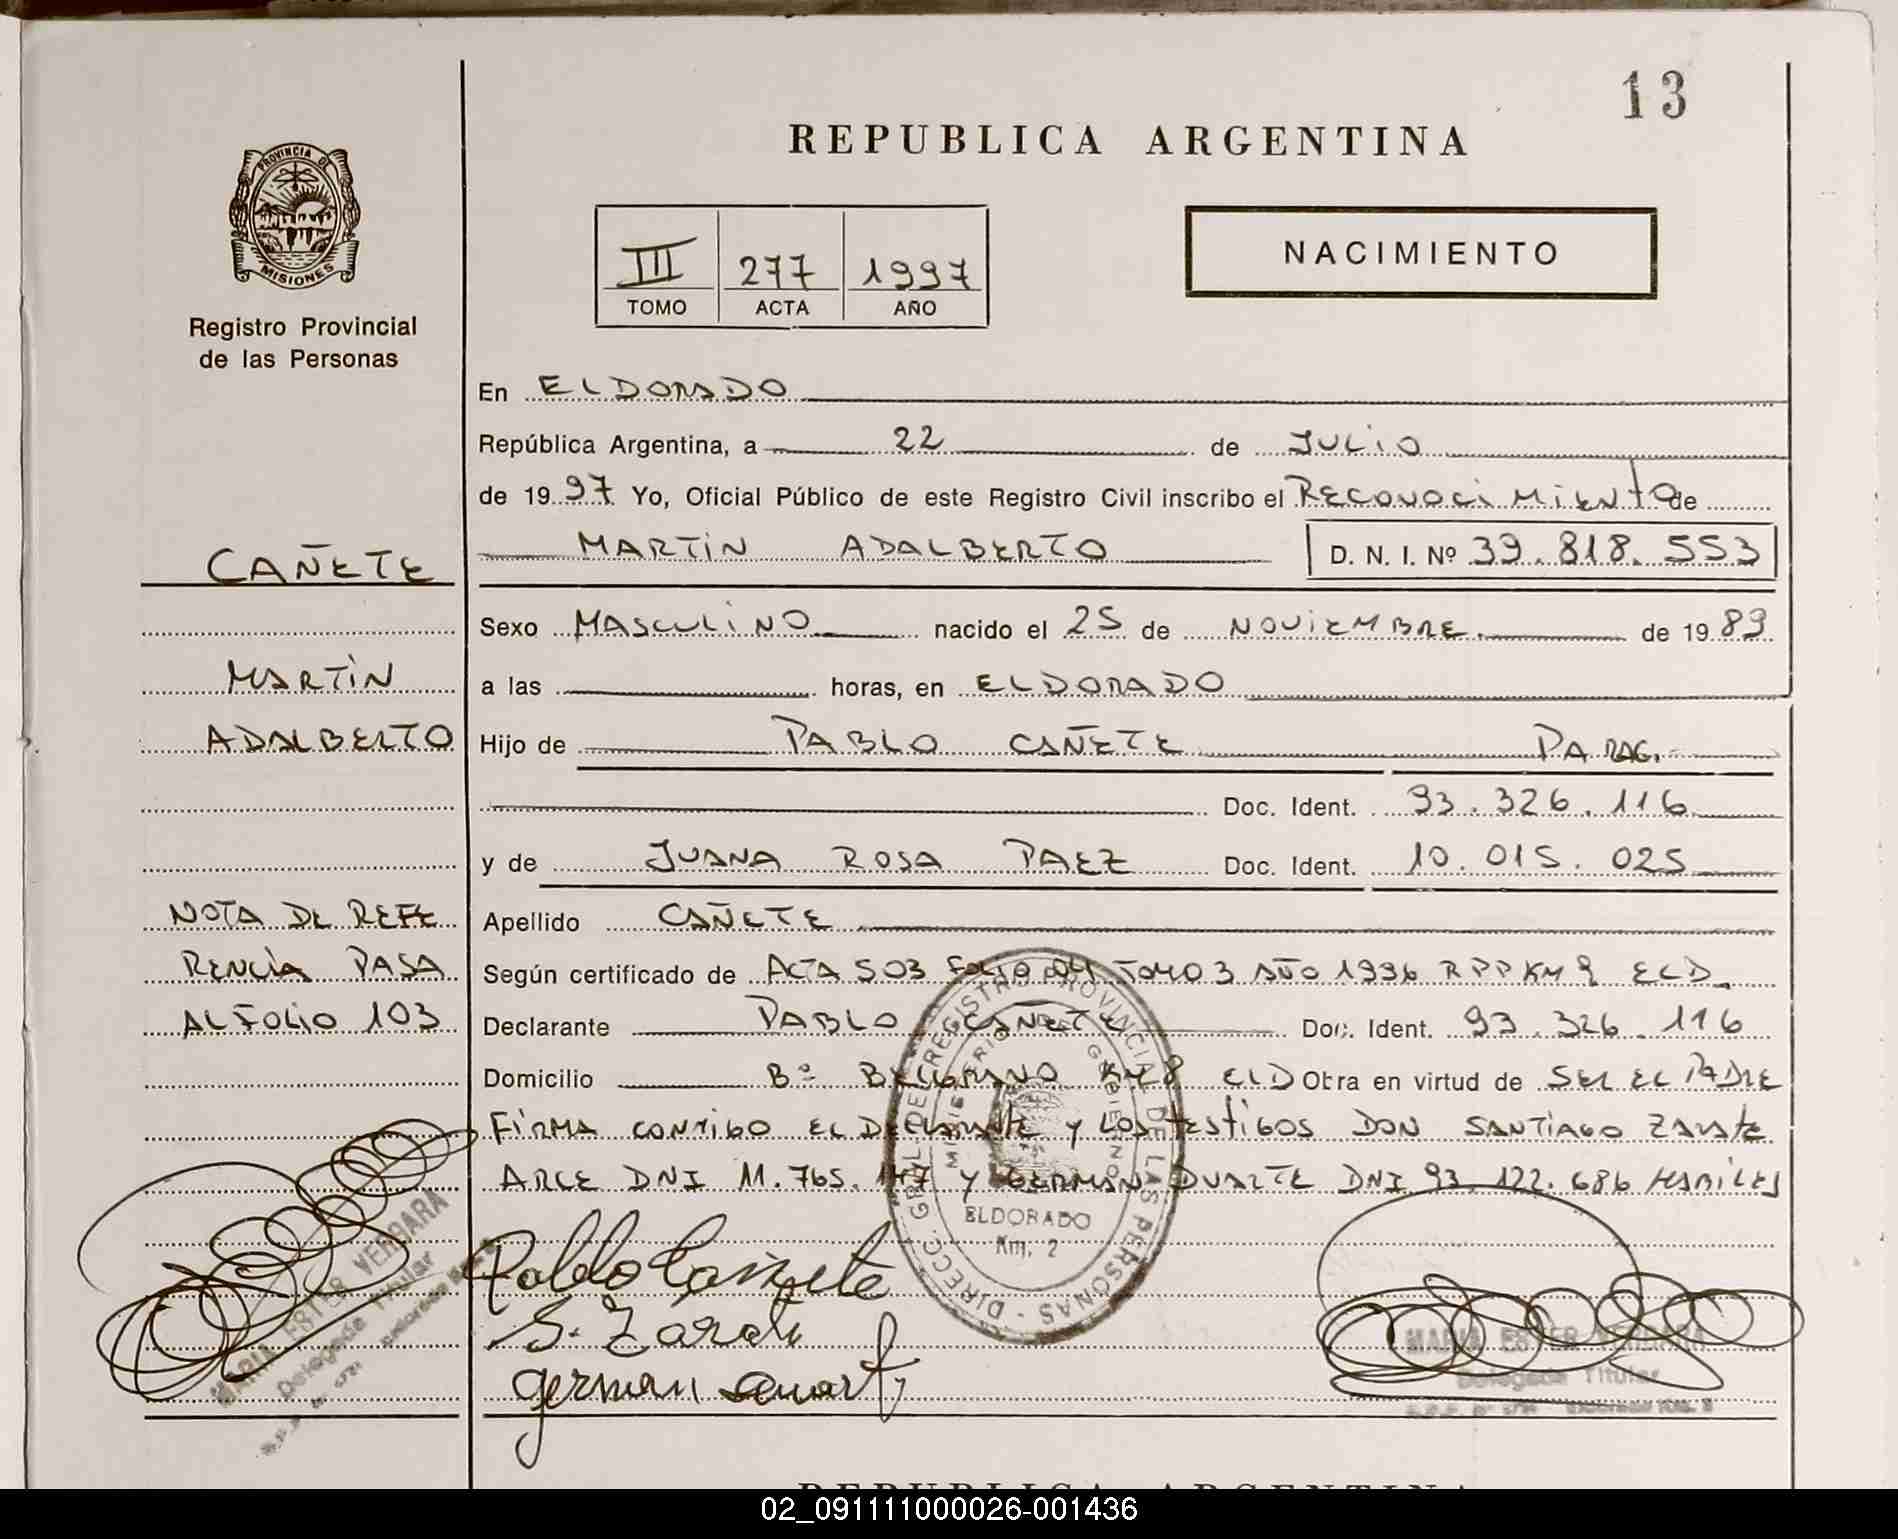 13
REPUBLICA ARGENTINA
PROVINCIA DE MISIONES
Registro Provincial
de las Personas
III 277 1997
TOMO ACTA AÑO
NACIMIENTO
En ELDORADO
República Argentina, a 22 de JULIO
de 1997 Yo, Oficial Público de este Registro Civil inscribo el RECONOCIMIENTO de
MARTIN ADALBERTO D. N. I. Nº 39.818.553
CAÑETE
Sexo MASCULINO nacido el 25 de NOVIEMBRE de 1989
MARTIN
a las horas, en ELDORADO
ADALBERTO
Hijo de PABLO CAÑETE PARAG.
Doc. Ident. 93.326.116
y de JUANA ROSA PAEZ Doc. Ident. 10.015.025
NOTA DE REFE
Apellido CAÑETE
RENCIA PASA
Según certificado de ACTA 503 Folio 04 TOMO 3 AÑO 1996 RPP KM 9 ELD
AL FOLIO 103
Declarante PABLO CAÑETE Doc. Ident. 93.326.116
Domicilio Bº BELGRANO KM 8 ELD Obra en virtud de SER EL PADRE
FIRMA CONMIGO EL DECLARANTE Y LOS TESTIGOS DON SANTIAGO ZARATE
ARCE DNI 11.765.147 Y GERMAN DUARTE DNI 93.122.686 HABILES
DIRECC. GRAL. DE REGISTRO PROVINCIAL DE LAS PERSONAS
MINISTERIO DE GOBIERNO
ELDORADO
Km. 2
Pablo Cañete
S. Zarate
german Duarte
MARIA ESTER VERGARA
Delegada Titular
MARIA ESTER VERGARA
Delegada Titular
REPUBLICA ARGENTINA
02_091111000026-001436